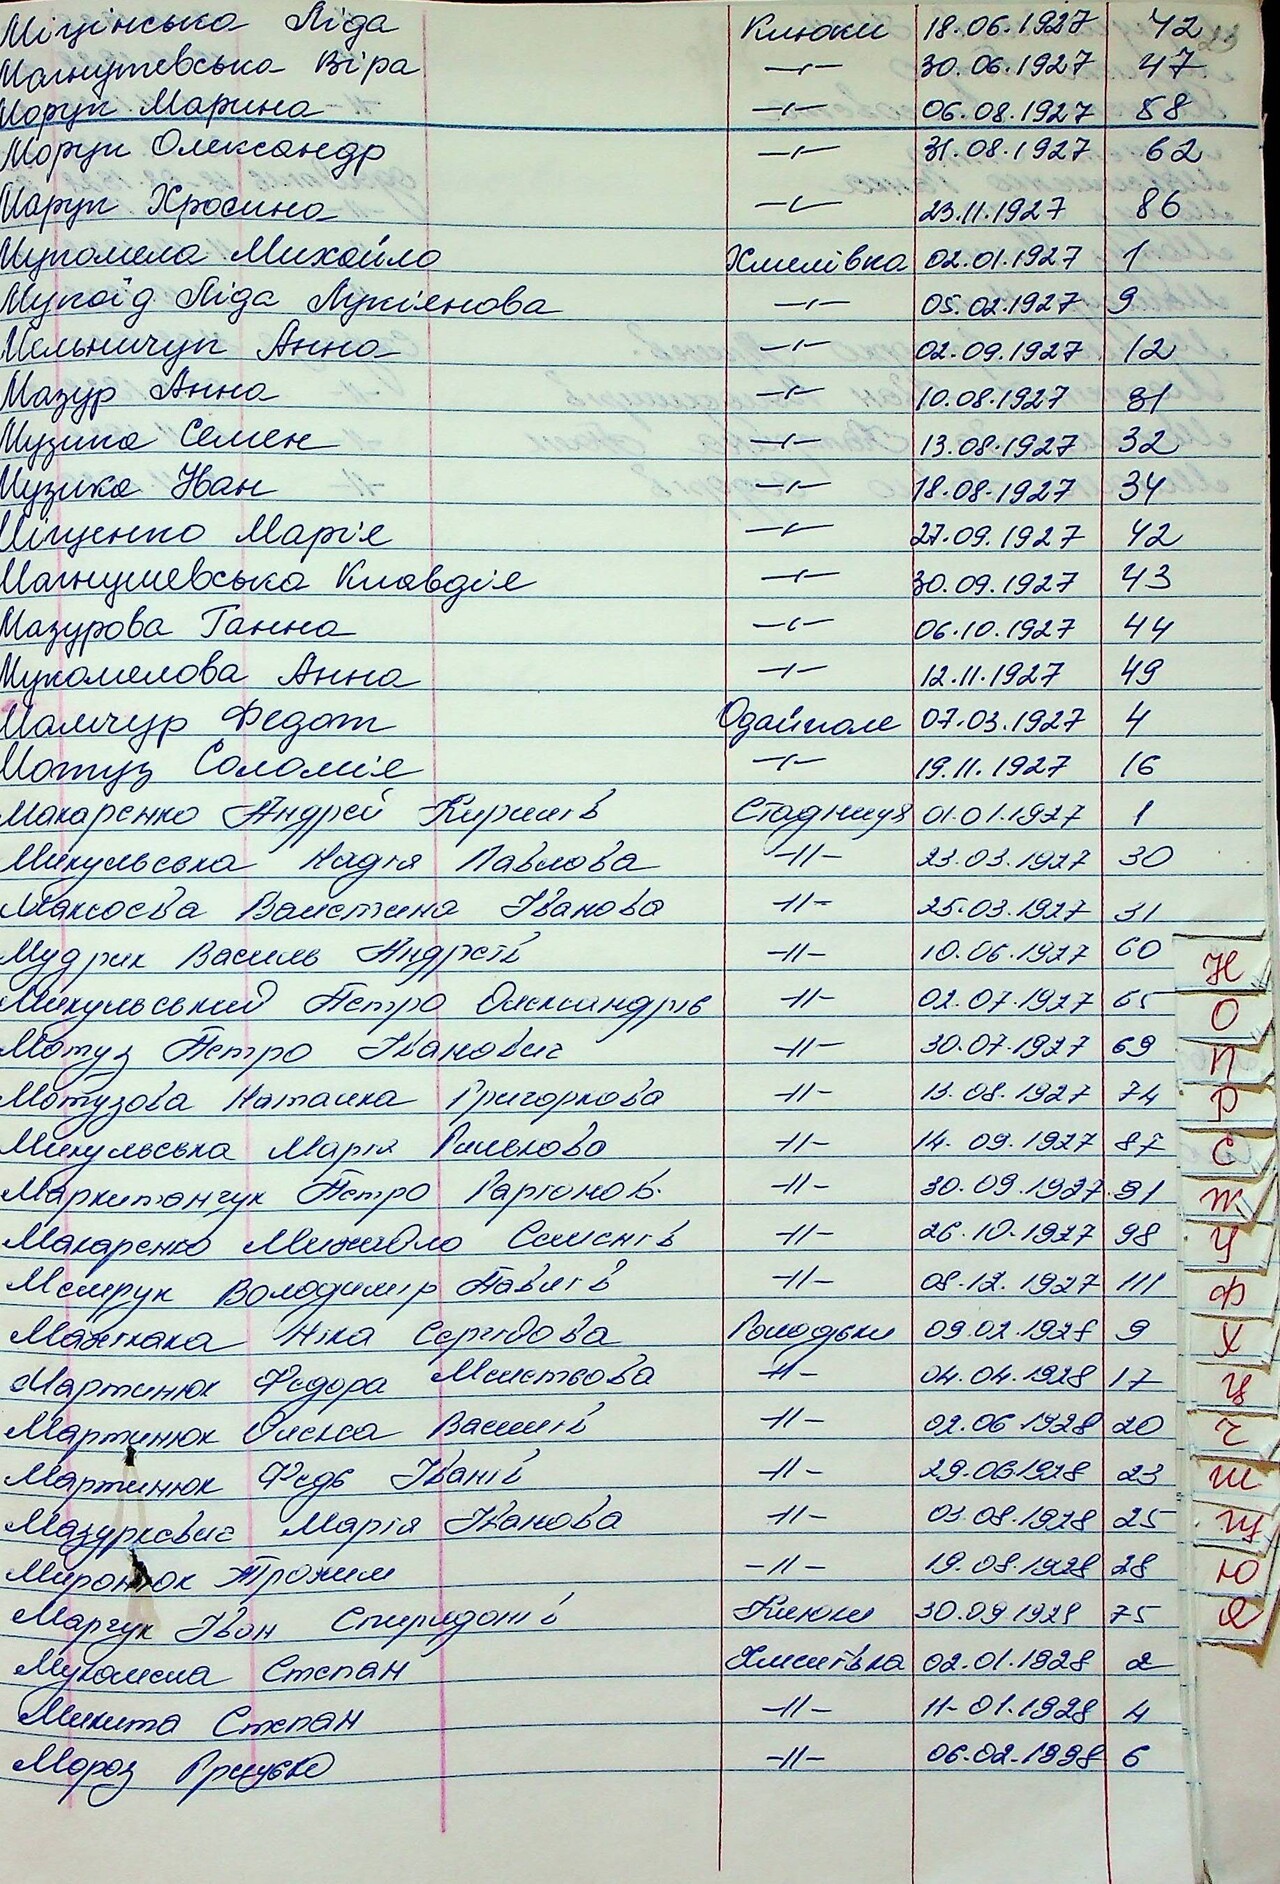 Міцінська Ліда Клюки 18.06.1927 42
Магнушевська Віра -"- 30.06.1927 47
Морук Марина -"- 06.08.1927 58
Морук Олександр -"- 31.08.1927 62
Марук Хросина -"- 23.11.1927 86
Мукомела Михайло Хмелівка 02.01.1927 1
Мукоїд Ліда Лукіянова -"- 05.02.1927 9
Мельничук Анна -"- 02.09.1927 12
Мазур Анна -"- 10.08.1927 31
Музика Семен -"- 13.08.1927 32
Музика Іван -"- 18.08.1927 34
Міщенко Марія -"- 27.09.1927 42
Магнушевська Клавдія -"- 30.09.1927 43
Мазурова Ганна -"- 06.10.1927 44
Мукомелова Анна -"- 12.11.1927 49
Мамчур Федот Одайполе 07.03.1927 4
Мотуз Соломія -"- 19.11.1927 16
Макаренко Андрей Кирилів Стадниця 01.01.1927 1
Микульська Надія Павлова -"- 23.03.1927 30
Валентина Іванова -"- 25.03.1927 31
Мудрик Василь Андреїв -"- 10.06.1927 60
Микульський Петро Олександрів -"- 02.07.1927 65
Мотуз Петро Іванович -"- 30.07.1927 69
Мотузова Наталка Григоркова -"- 13.08.1927 74
Микульська Марія Вількова -"- 14.09.1927 87
Маркитанчук Петро Ларіонов. -"- 30.09.1927 91
Макаренко Михайло Семенів -"- 26.10.1927 98
Володимир Павлів -"- 08.12.1927 111
Ніна Сергійова Володьки 09.02.1928 9
Мартинюк Федора -"- 04.04.1928 17
Мартинюк Олекса Василів -"- 02.06.1928 20
Мартинюк Федь Іванів -"- 29.06.1928 23
Мазуркевич Марія Іванова -"- 03.08.1928 25
Миронюк Трохим -"- 19.08.1928 28
Марчук Іван Спиридонів Клюки 30.09.1928 75
Мукомела Степан Хмелівка 02.01.1928 2
Микита Степан -"- 11.01.1928 4
Мороз Грицько -"- 06.02.1928 6
Н
О
П
Р
С
Т
У
Ф
Х
Ц
Ч
Ш
Щ
Ю
Я